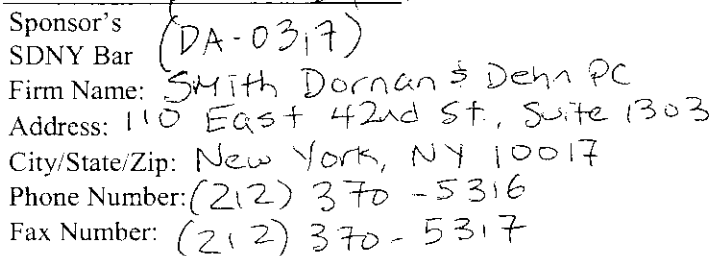 Sponsor's
SDNY Bar (DA-0317)
Firm Name: Smith Dornan & Dehn PC
Address: 110 East 42nd St., Suite 1303
City/State/Zip: New York, NY 10017
Phone Number: (212) 370-5316
Fax Number: (212) 370-5317